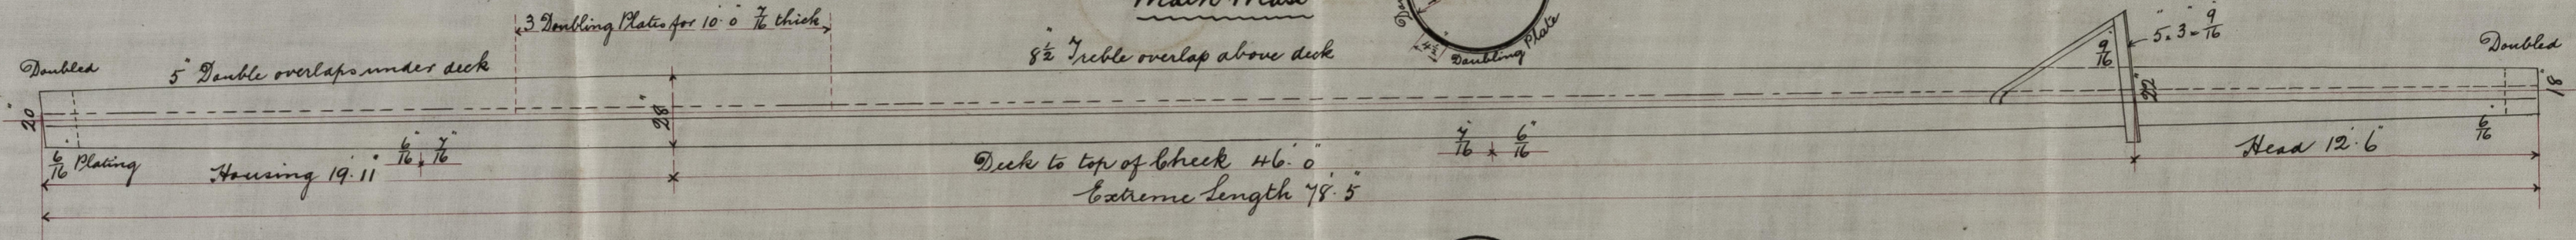 Main Mast
3 Doubling Plates for 10'.0" 7/16" thick
Doubling Plate
4½"
5" × 3" × 9/16"
9/16"
Doubled
5" Double overlaps under deck
8½" Treble overlap above deck
Doubled
20"
28"
22"
18"
6/16" Plating
Housing 19'.11"
6/16" × 7/16"
Deck to top of Cheek 46'.0"
7/16" × 6/16"
Head 12'.6"
6/16"
Extreme Length 78'.5"